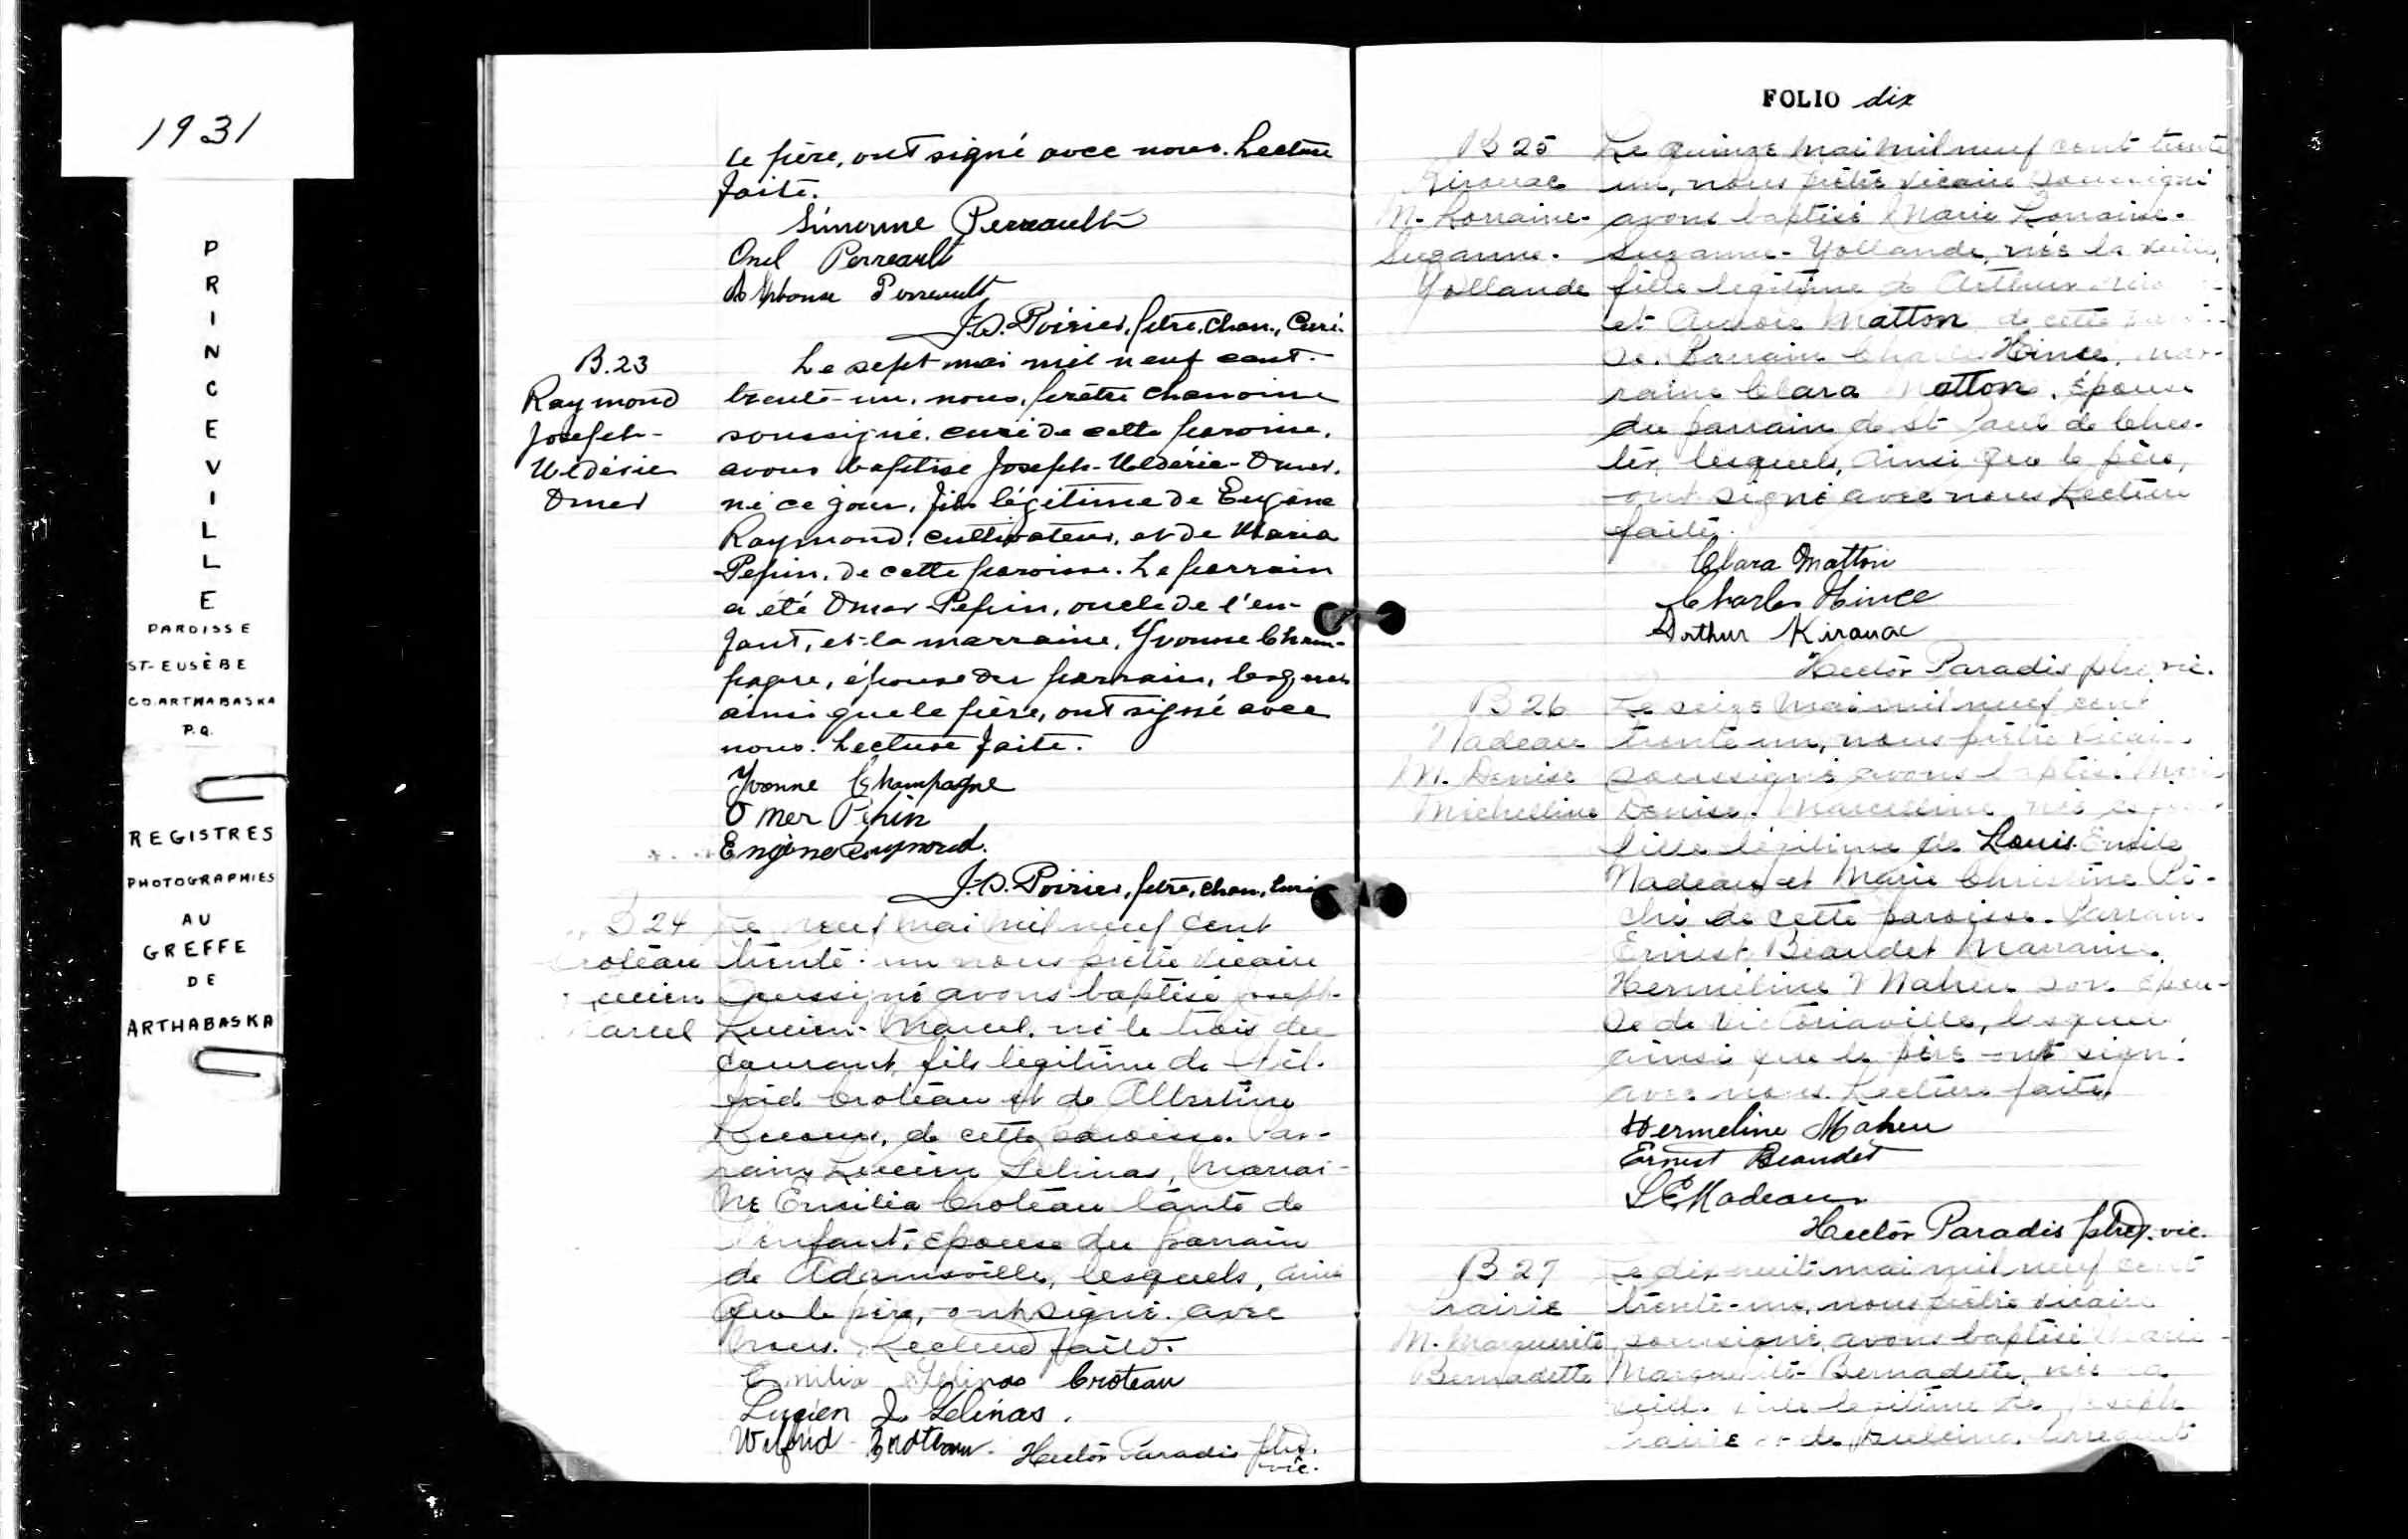 1931
PRINCEVILLE
PAROISSE
ST-EUSÈBE
CO. ARTHABASKA
P.Q.
REGISTRES
PHOTOGRAPHIES
AU
GREFFE
DE
ARTHABASKA
le père, ont signé avec nous. Lecture
faite.
Simonne Perreault
Onel Perreault
Alphonse Perreault
Poirier, ptre, chan., Curé.
B.23
Raymond
Joseph-
Uldéric
Omer
Le sept mai mil neuf cent-
trente-un, nous, prêtre chanoine
soussigné, curé de cette paroisse,
avons baptisé Joseph-Uldéric-Omer,
né ce jour, fils légitime de Eugène
Raymond, cultivateur, et de Maria
Pepin, de cette paroisse. Le parrain
a été Omer Pepin, oncle de l'en-
fant, et la marraine, Yvonne Cham-
pagne, épouse du parrain, lesquels
ainsi que le père, ont signé avec
nous. Lecture faite.
Yvonne Champagne
Omer Pépin
Eugène Raymond.
Poirier, ptre, chan., Curé
B 24
Croteau
Lucien
Marcel
Le neuf mai mil neuf cent
trente-un nous prêtre vicaire
soussigné avons baptisé Joseph-
Lucien-Marcel, né le trois du
courant, fils légitime de Wil-
frid Croteau et de Albertine
de cette paroisse. Par-
rain, Lucien Gelinas, Marrai-
ne Emilia Croteau tante de
l'enfant, épouse du parrain
de Adamsville, lesquels, ainsi
que le père, ont signé avec
nous. Lecture faite.
Emilia Gélinas Croteau
Lucien J. Gelinas.
Wilfrid Croteau.
Hector Paradis ptre.
vic.
FOLIO dix
B 25
Kirouac
M. Lorraine-
Suzanne-
Yollande
Le quinze mai mil neuf cent trente
un, nous prêtre vicaire soussigné
avons baptisé Marie Lorraine-
Suzanne-Yollande, née la veille,
fille légitime de Arthur
et Matton de cette
Parrain Charles Hince, mar-
raine Clara Matton, épouse
du parrain de St Paul de Ches-
ter, lesquels, ainsi que le père,
ont signé avec nous Lecture
faite.
Clara Matton
Charles Hince
Arthur Kirouac
Hector Paradis ptre, vic.
B 26
Nadeau
M. Denise
Michelline
Le seize mai mil neuf cent
trente un, nous prêtre vicaire
soussigné avons baptisé Marie
Denise Marcelline née
fille légitime de Louis Emile
Nadeau et Marie Christine Pi-
ché de cette paroisse. Parrain
Ernest Beaudet Marraine
Herméline Maheu son épou-
se de Victoriaville, lesquels
ainsi que le père ont signé
avec nous. Lecture faite.
Hermeline Maheu
Ernest Beaudet
L E Nadeau
Hector Paradis ptre. vic.
B 27
Prairie
M. Marguerite
Bernadette
Le dix huit mai mil neuf cent
trente-un, nous prêtre vicaire
soussigné, avons baptisé Marie-
Marguerite-Bernadette, née la
veille fille légitime de Joseph
Prairie et de